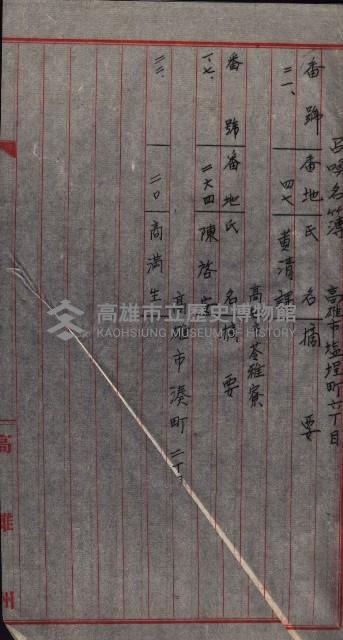 呼名簿 高雄市塩埕町六丁目
番號 番地 氏名 摘要
二一、 四七 黃清
高 苓雅寮
番號 番地 氏名 摘要
一七、 二六四 陳啓
高雄市湊町二丁
二二、 二〇 高満生
高雄州
高雄市立歷史博物館
KAOHSIUNG MUSEUM OF HISTORY